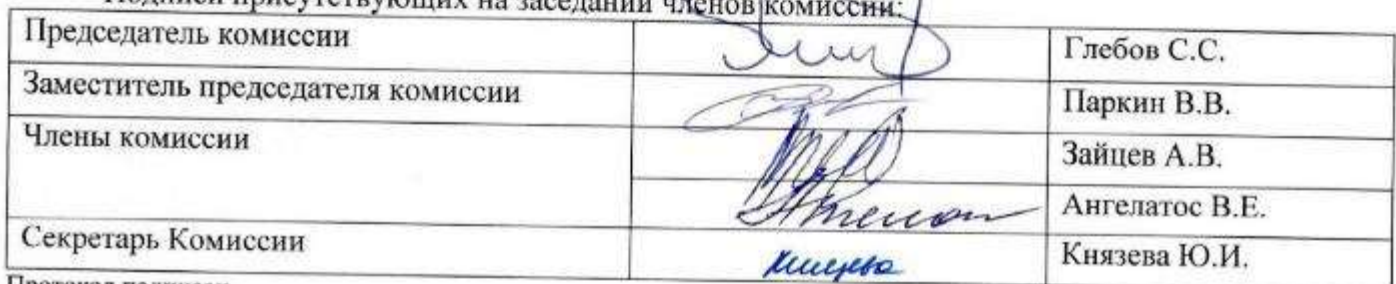 Подписи присутствующих на заседании членов комиссии:
Председатель комиссии Глебов С.С.
Заместитель председателя комиссии Паркин В.В.
Члены комиссии Зайцев А.В.
Ангелатос В.Е.
Секретарь Комиссии Князева Ю.И.